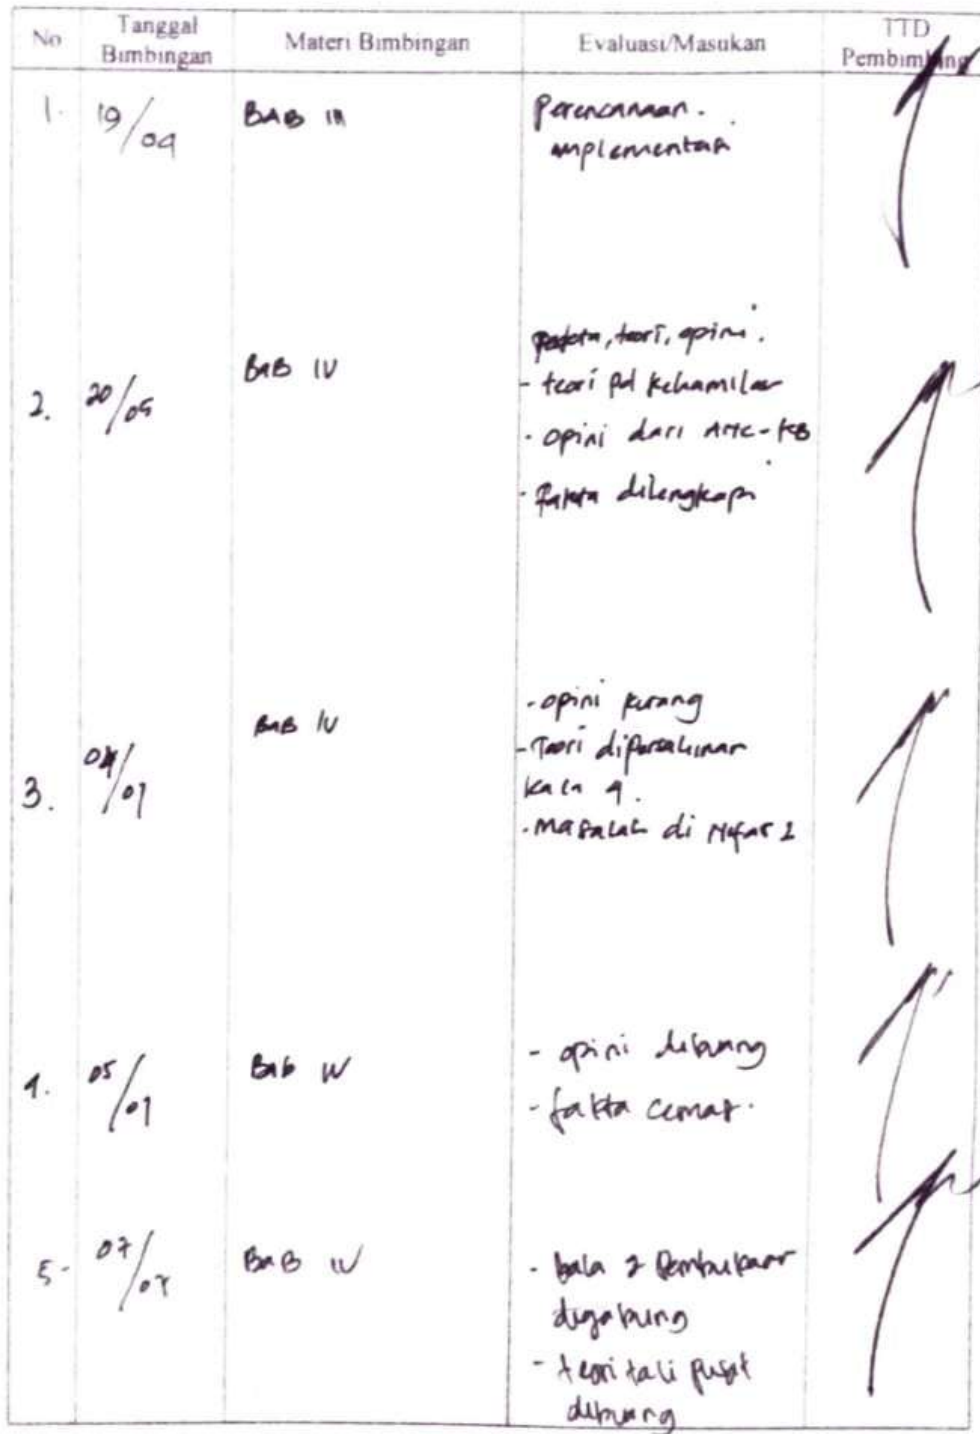 No
Tanggal
Bimbingan
Materi Bimbingan
Evaluasi/Masukan
TTD
Pembimbing
1.
19/04
BAB III
Perencanaan.
implementasi
2.
20/05
BAB IV
Fakta, teori, opini.
- teori pd kehamilan
- opini dari ANC-KB
- Fakta dilengkapi
3.
BAB IV
- opini kurang
- Teori dipersalinan
kala 4.
- Masalah di Nifas 1
4.
Bab IV
- opini dibuang
- fakta cemas.
5.
BAB IV
- kala 2 Pembukaan
digabung
- teori tali pusat
dibuang